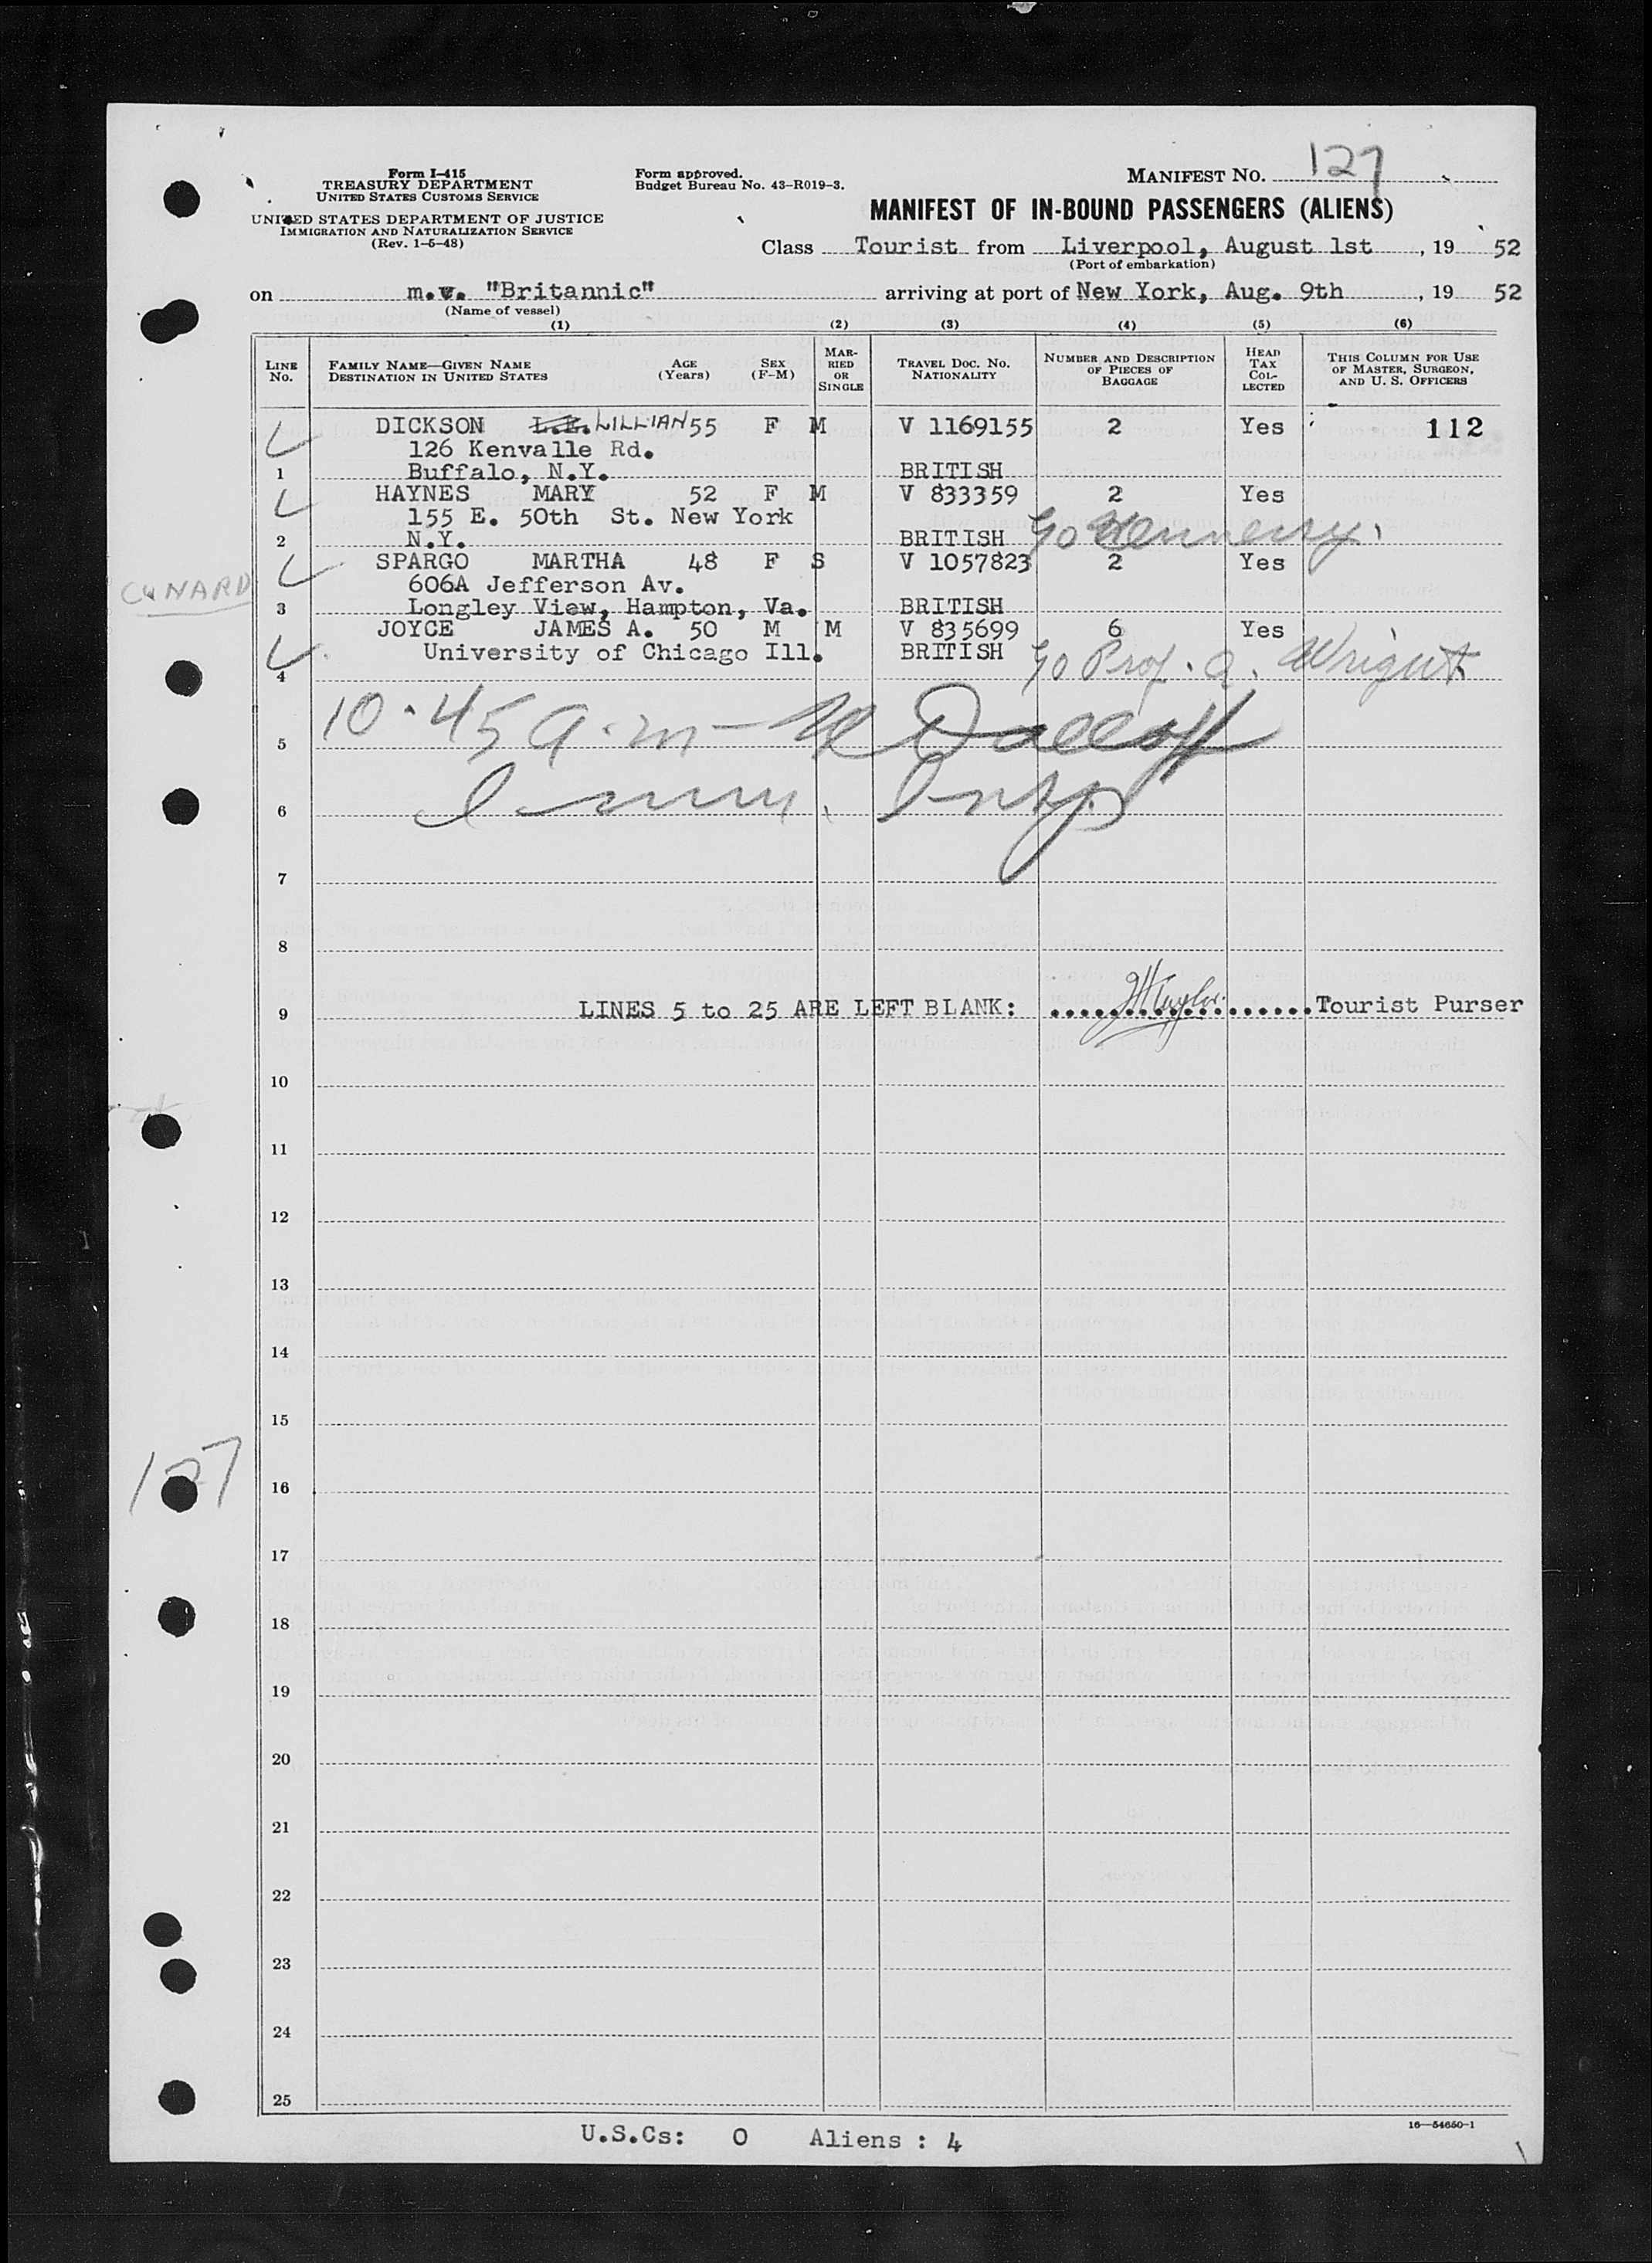 MANIFEST NO. 127
Form I-415
TREASURY DEPARTMENT
UNITED STATES CUSTOMS SERVICE
UNITED STATES DEPARTMENT OF JUSTICE
IMMIGRATION AND NATURALIZATION SERVICE
(Rev. 1-5-48)
Form approved.
Budget Bureau No. 43-R019-3.
MANIFEST OF IN-BOUND PASSENGERS (ALIENS)
Class Tourist from Liverpool, August 1st, 19 52
(Port of embarkation)
on m.v. "Britannic" arriving at port of New York, Aug. 9th, 19 52
(Name of vessel)
(1) (2) (3) (4) (5) (6)
LINE NO.
FAMILY NAME—GIVEN NAME
DESTINATION IN UNITED STATES
AGE (Years)
SEX (F-M)
MARRIED OR SINGLE
TRAVEL DOC. NO. NATIONALITY
NUMBER AND DESCRIPTION OF PIECES OF BAGGAGE
HEAD TAX COLLECTED
THIS COLUMN FOR USE OF MASTER, SURGEON, AND U. S. OFFICERS
DICKSON L.E. LILLIAN 55 F M V 1169155 2 Yes 112
126 Kenvalle Rd.
1 Buffalo, N.Y. BRITISH
HAYNES MARY 52 F M V 833359 2 Yes
155 E. 50th St. New York
2 N.Y. BRITISH c/o Hennessy.
SPARGO MARTHA 48 F S V 1057823 2 Yes
CUNARD
606A Jefferson Av.
3 Longley View, Hampton, Va. BRITISH
JOYCE JAMES A. 50 M M V 835699 6 Yes
University of Chicago Ill. BRITISH c/o Prof. Q. Wright
4
10.45 a.m
5
6 Imm. Insp
7
8
9 LINES 5 to 25 ARE LEFT BLANK: Taylor Tourist Purser
10
11
12
13
14
15
127
16
17
18
19
20
21
22
23
24
25
U.S.Cs: 0 Aliens : 4
16—54650-1